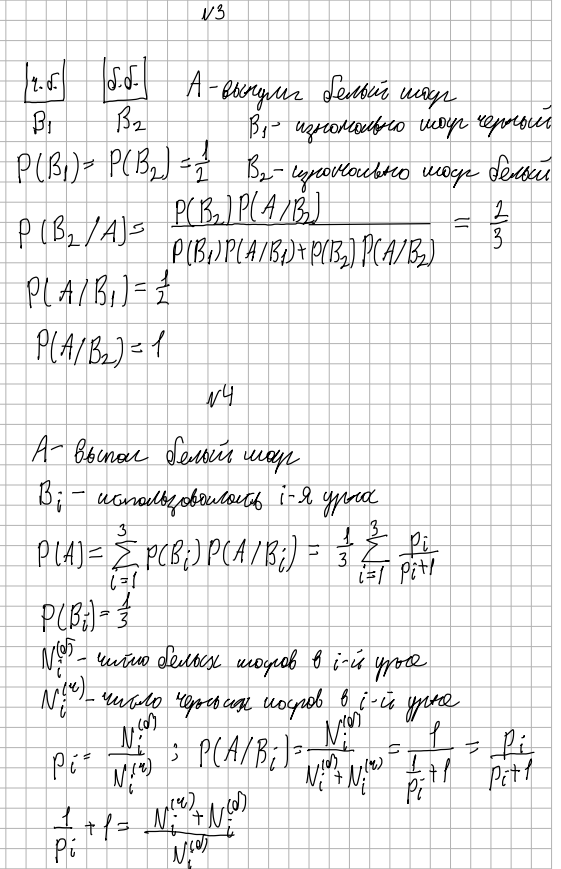 №3
ч.б. б.б. A - вынули белый шар
B₁ B₂ B₁ - изначально шар черный
P(B₁) = P(B₂) = 1/2 B₂ - изначально шар белый
P(B₂/A) = P(B₂)P(A/B₂) / (P(B₁)P(A/B₁) + P(B₂)P(A/B₂)) = 2/3
P(A/B₁) = 1/2
P(A/B₂) = 1
№4
A - выпал белый шар
Bᵢ - использовалась i-я урна
P(A) = ∑_{i=1}^{3} P(Bᵢ)P(A/Bᵢ) = 1/3 ∑_{i=1}^{3} pᵢ/(pᵢ+1)
P(Bᵢ) = 1/3
Nᵢ^(б) - число белых шаров в i-й урне
Nᵢ^(ч) - число черных шаров в i-й урне
pᵢ = Nᵢ^(б)/Nᵢ^(ч) ; P(A/Bᵢ) = Nᵢ^(б)/(Nᵢ^(б) + Nᵢ^(ч)) = 1/(1/pᵢ + 1) = pᵢ/(pᵢ+1)
1/pᵢ + 1 = (Nᵢ^(ч) + Nᵢ^(б))/Nᵢ^(б)